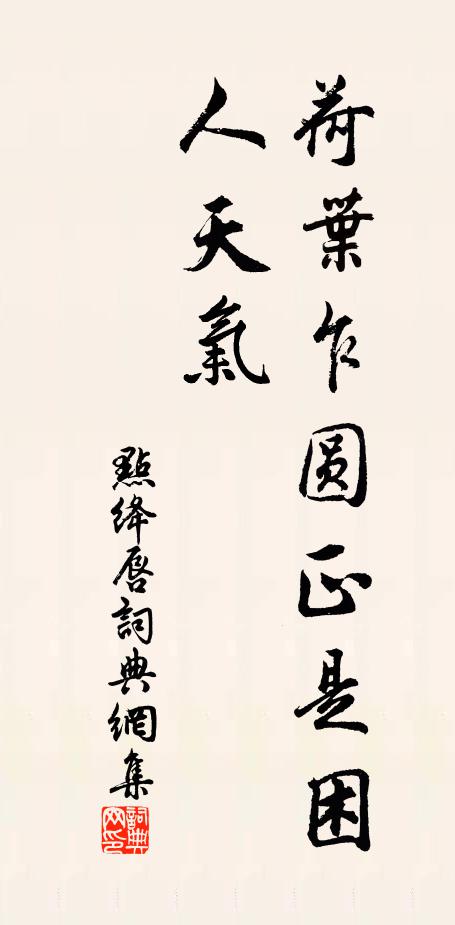 荷葉乍圓正是困
人天氣
點絳唇詞典網集
詞典
网印